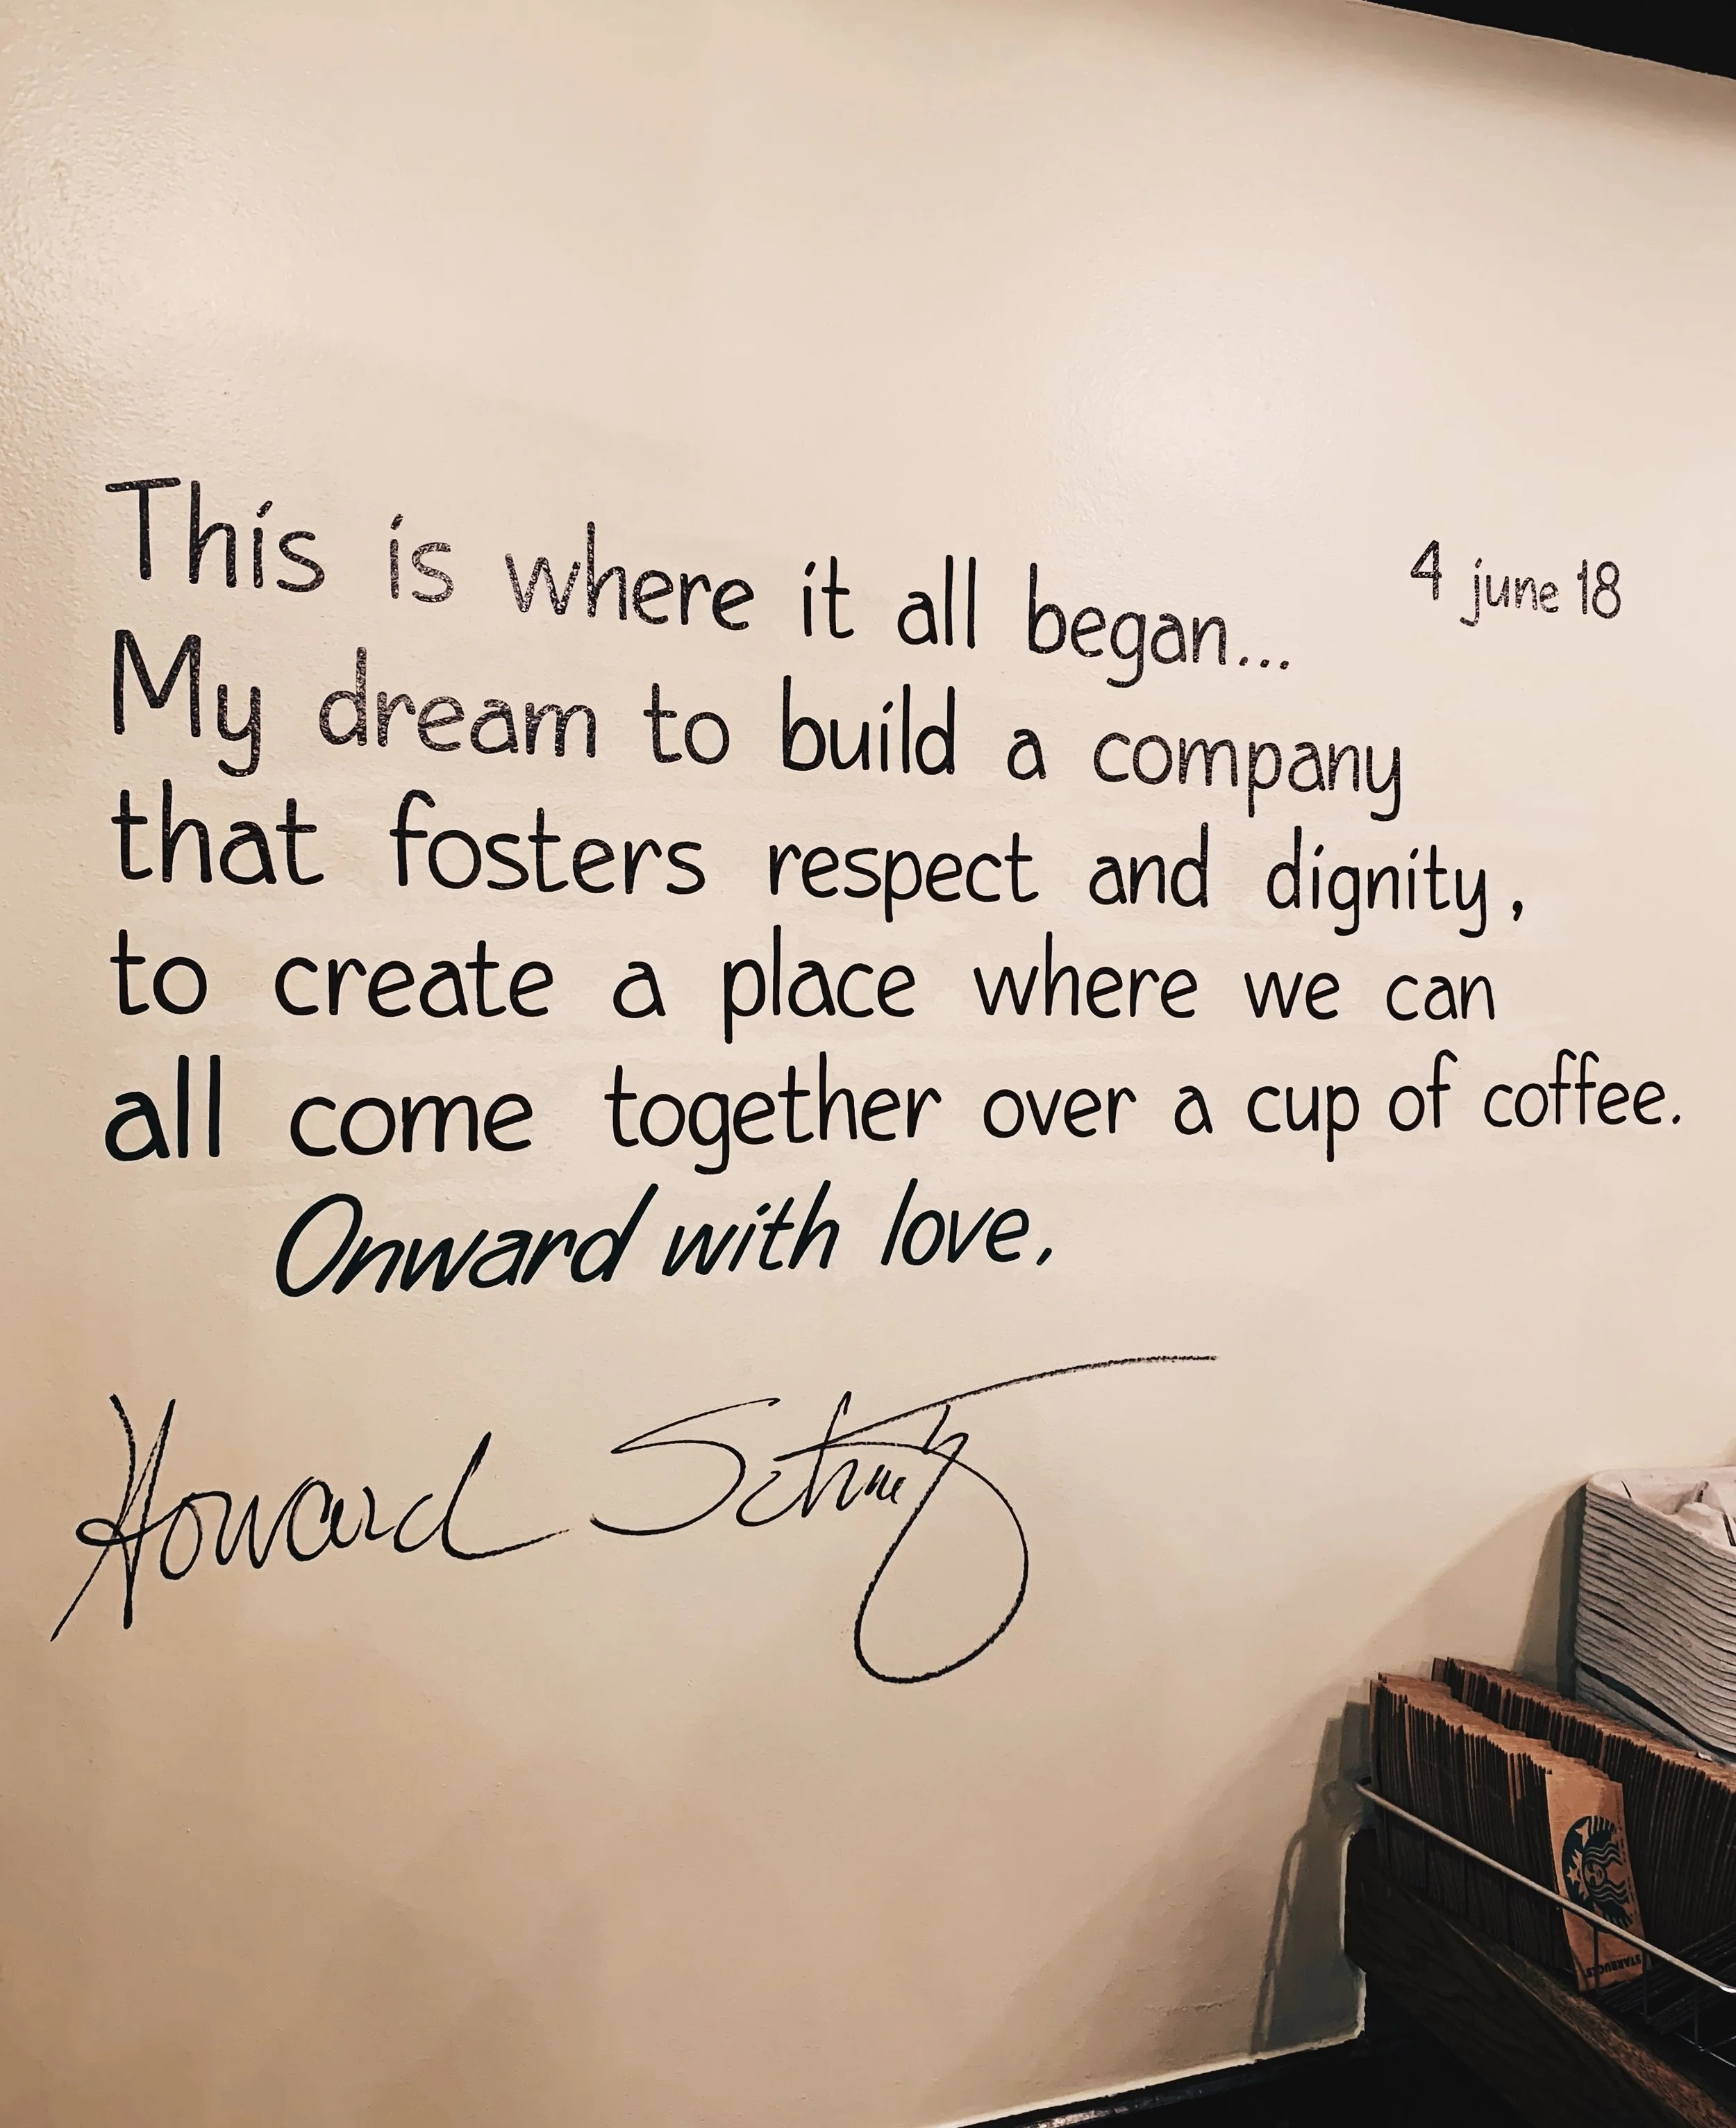 This is where it all began...
4 june 18
My dream to build a company
that fosters respect and dignity,
to create a place where we can
all come together over a cup of coffee.
Onward with love,
Howard Schultz
STARBUCKS